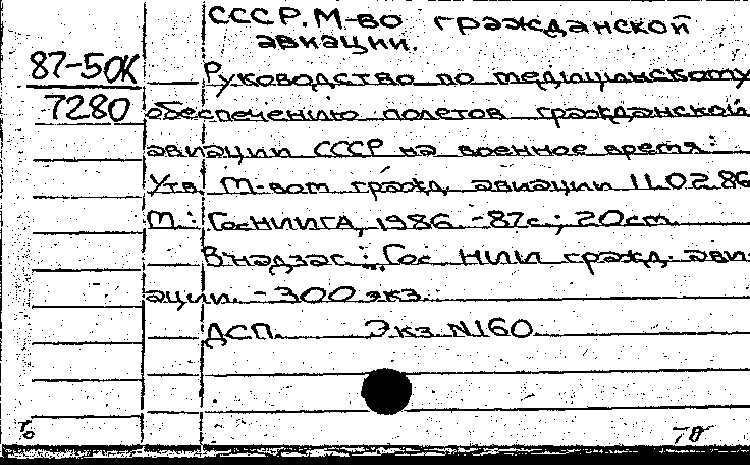 СССР. М-во гражданской
авиации.
87-50К
Руководство по медицинскому
7280
обеспечению полетов гражданской
авиации СССР на военное время:
Утв. М-вом гражд. авиации 11.02.86
М.: ГосНИИГА, 1986. -87с.; 20см.
В надзаг.: Гос. НИИ гражд. ави-
ации. - 300 экз.
ДСП. Экз N160